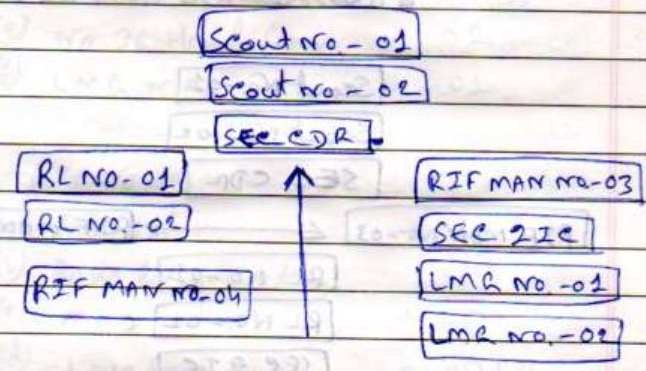 Scout No. - 01
Scout No - 02
SEC CDR
RL NO - 01
RL NO. - 02
RIF MAN NO - 04
RIF MAN NO - 03
SEC 2IC
LMG NO. - 01
LMG NO. - 02